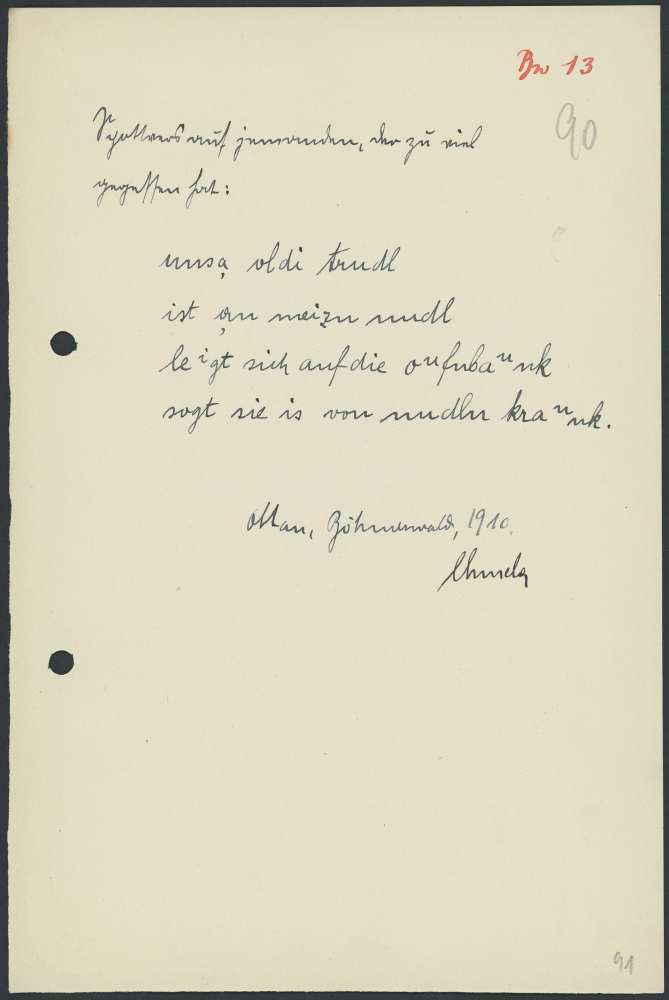 Bw 13
90
Spottvers auf jemanden, der zu viel
gegessen hat:
unsa̦ oldi trudl
ist a̦n meizn nudl
leⁱgt sich auf die oᵘfnbaᵘnk
sogt sie is von nudln kraᵘnk.
Ottau, Böhmerwald, 1910.
Chmela
91